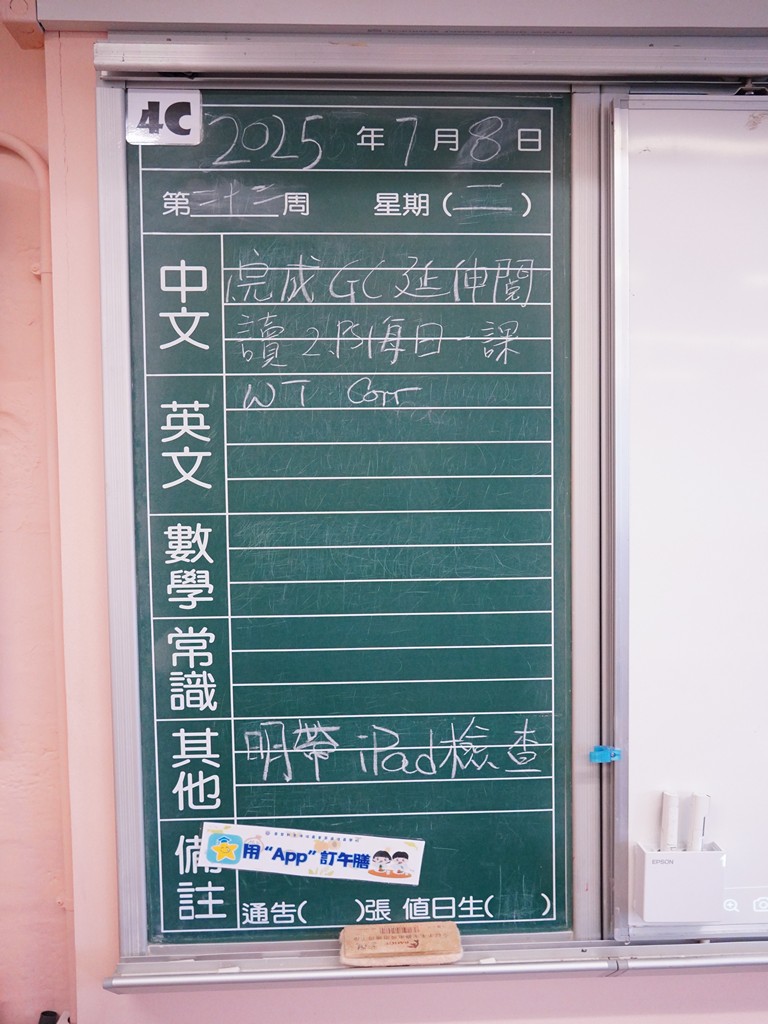 4C
2025 年 7 月 8 日
第三十二周 星期(二)
中文
完成GC延伸閱
讀 2. 每日一課
英文
WT Corr
數學
常識
其他
明帶 iPad檢查
備註
用“App”訂午膳
通告( )張 值日生( )
EPSON